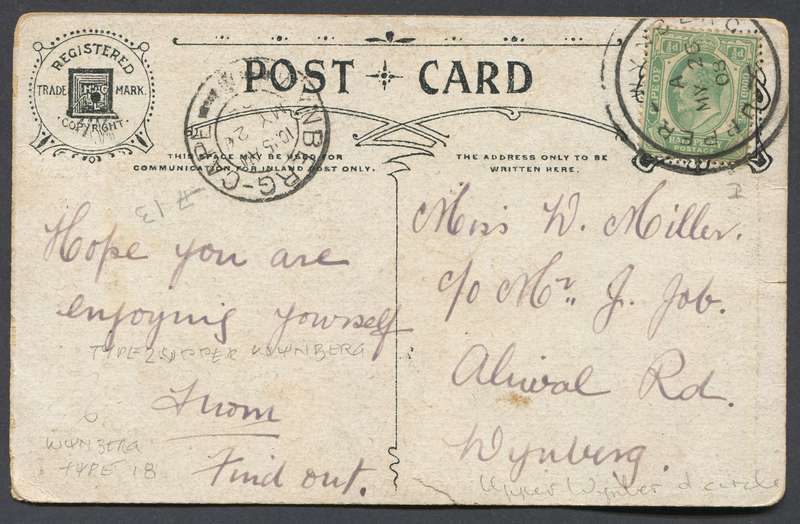 REGISTERED
TRADE MARK.
COPYRIGHT.
POST CARD
THIS SPACE MAY BE USED FOR
COMMUNICATION FOR INLAND POST ONLY.
THE ADDRESS ONLY TO BE
WRITTEN HERE.
WYNBERG-CAPE
10.15 AM
MY 26
UPPER WYNBERG
A
MY 26
08
HALF PENNY
POSTAGE
# 13
Hope you are
enjoying yourself
TYPE 2 UPPER WYNBERG
From
Find out.
WYNBERG
TYPE 18
Miss W. Miller.
c/o Mr. J. Job.
Aliwal Rd.
Wynberg.
Upper Wynber d circle